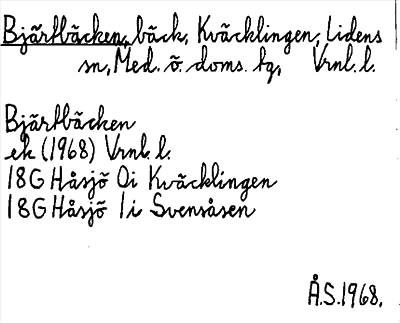 Bjärtbäcken, bäck, Kväcklingen, Lidens
sn, Med. ö. doms. tg, Vrnl. l.
Bjärtbäcken
ek (1968) Vrnl. l.
18G Håsjö 0i Kväcklingen
18G Håsjö 1i Svensåsen
Å.S. 1968.